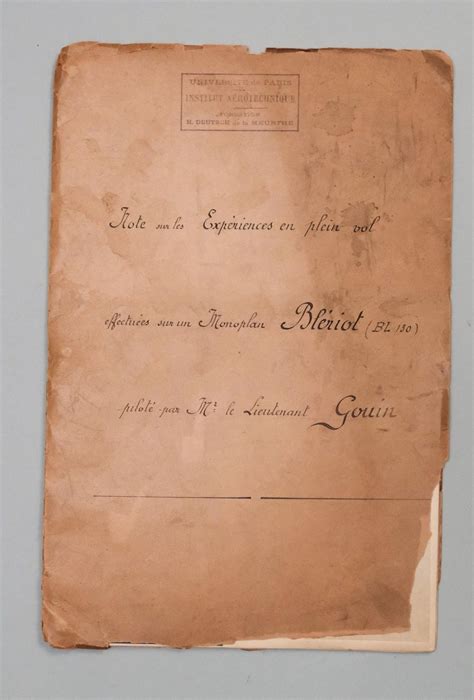 UNIVERSITÉ DE PARIS
INSTITUT AÉROTECHNIQUE
FONDATION
H. DEUTSCH de la MEURTHE
Note sur les Expériences en plein vol
effectuées sur un Monoplan Blériot (BL 130)
piloté par Mr. le Lieutenant Gouin